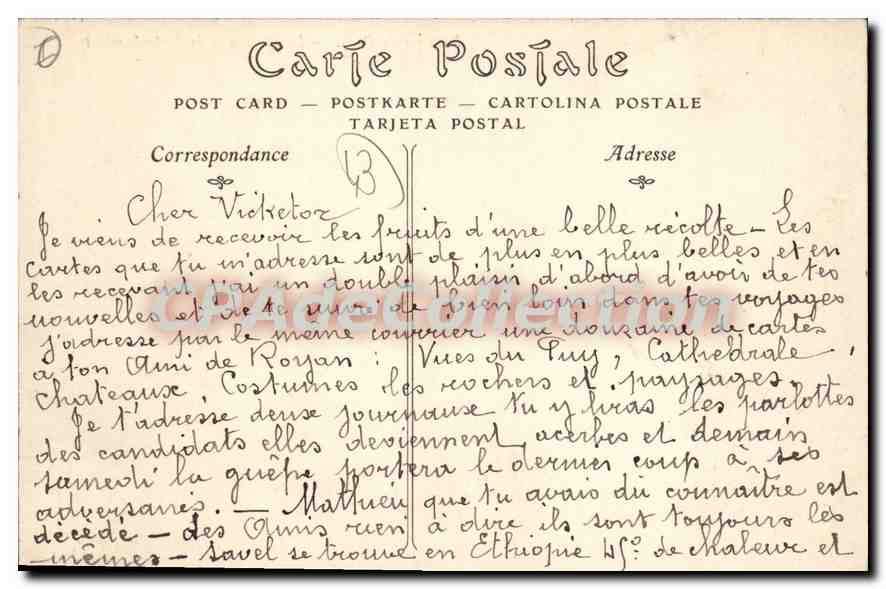 Carte Postale
POST CARD — POSTKARTE — CARTOLINA POSTALE
TARJETA POSTAL
Correspondance
Adresse
Cher Vicketor
Je viens de recevoir les fruits d'une belle récolte - Les
cartes que tu m'adresse sont de plus en plus belles et en
les recevant j'ai un double plaisir d'abord d'avoir de tes
nouvelles et de te suivre de bien loin dans tes voyages
j'adresse par le même courrier une douzaine de cartes
à ton Ami de Royan : Vues du Puy, Cathédrale,
Chateaux, Costumes les rochers et paysages.
Je t'adresse deux journaux tu y liras les parlottes
des candidats elles deviennent acerbes et demain
samedi la guêpe portera le dernier coup à ses
adversaires. — Mathieu que tu avais du connaitre est
décédé - des Amis rien à dire ils sont toujours les
mêmes - Savel se trouve en Ethiopie 45° de chaleur et
CPAdeCollection